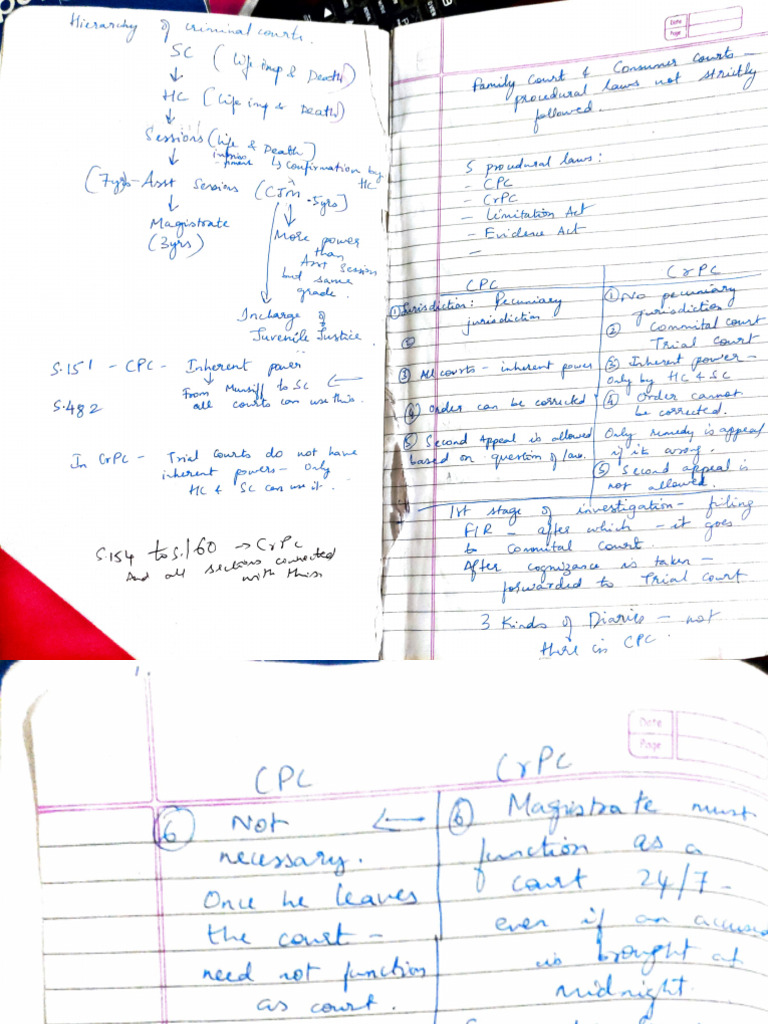 Hierarchy of criminal courts.
SC (Life imp & Death)
HC (Life imp & Death)
Sessions (Life & Death)
imprisonment ↳ confirmation by HC
(7yrs - Asst Sessions (CJM - 5yrs)
Magistrate
(3yrs)
More power
than
Asst Session
but same
grade.
Incharge of
Juvenile Justice
S.151 - CPC - Inherent power
From Munsiff to SC ←
S.482 all courts can use this.
In CrPC - Trial Courts do not have
inherent powers - Only
HC & SC can use it.
S.154 to S.160 → CrPC
And all sections connected
with this
Date
Page
Family Court & Consumer Courts -
procedural laws not strictly
followed.
5 procedural laws:
- CPC
- CrPC
- Limitation Act
- Evidence Act
-
CPC
① Jurisdiction: Pecuniary
jurisdiction
②
③ All courts - inherent power
④ Order can be corrected
⑤ Second Appeal is allowed
based on question of law.
CrPC
① No pecuniary
jurisdiction
② Commital court
Trial court
③ Inherent power -
only by HC & SC
④ Order cannot
be corrected.
Only remedy is appeal
if it wrong.
⑤ Second appeal is
not allowed.
1st stage of investigation - filing
FIR - after which - it goes
to Commital court.
After cognizance is taken -
forwarded to Trial court
3 Kinds of Diaries - not
there in CPC.
Date
Page
CPC
⑥ Not ←
necessary.
Once he leaves
the court -
need not function
as court.
CrPC
⑥ Magistrate must
function as a
court 24/7 -
even if an accused
is brought at
midnight.